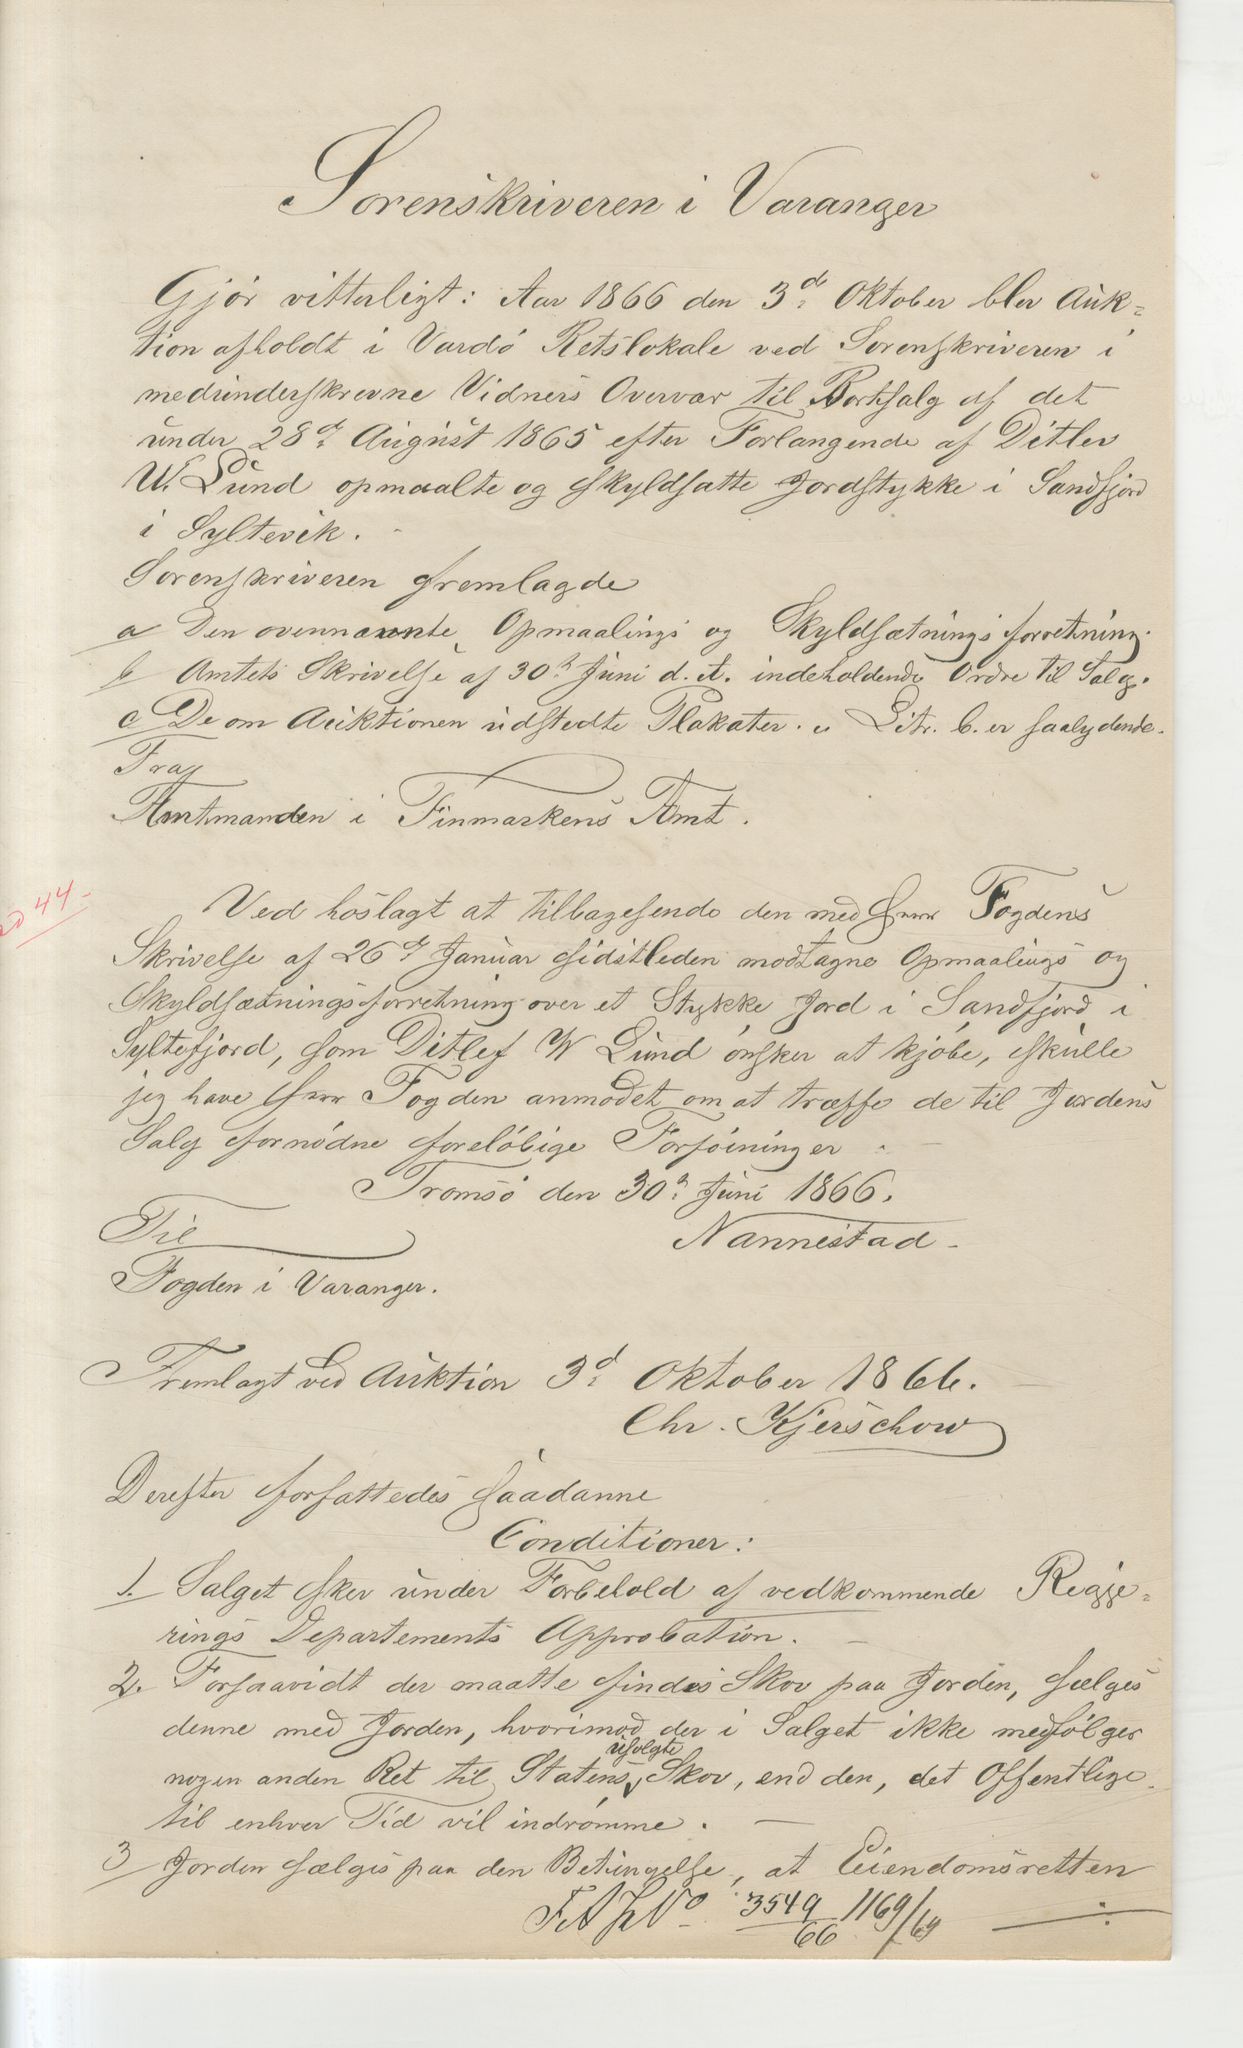 Sorenskriveren i Varanger
Gjör vitterligt: Aar 1866 den 3d Oktober blev Auk-
tion afholdt i Vardö Retslokale ved Sorenskriveren i
medunderskrevne Vidners Overvær til Bortsalg af det
under 28d August 1865 efter Forlangende af Ditlev
W. Lund opmaalte og skyldsatte Jordstykke i Sandfjord
i Syltevik.
Sorenskriveren fremlagde
a Den ovennævnte Opmaalings og Skyldsætningsforretning.
b Amtets Skrivelse af 30te Juni d. A. indeholdende Ordre til Salg.
c De om Auktionen udstedte Plakater. Litr. b. er saalydende.
Fra
Amtmanden i Finmarkens Amt.
44-
Ved hoslagt at tilbagesende den med Herr Fogdens
Skrivelse af 26de Januar sidstleden modtagne Opmaalings og
Skyldsætningsforretning over et Stykke Jord i Sandfjord i
Syltefjord, som Ditlef W Lund önsker at kjöbe, skulle
jeg have Herr Fogden anmodet om at træffe de til Jordens
Salg fornödne forelöbige Forföininger.
Tromsö den 30te Juni 1866.
Nannestad-
Til
Fogden i Varanger.
Fremlagt ved Auktion 3d Oktober 1866.
Chr. Kjerschow
Derefter forfattedes saadanne
Conditioner:
1. Salget sker under Forbehold af vedkommende Regje-
rings Departements Approbation.
2. Forsaavidt der maatte findes Skov paa Jorden, sælges
denne med Jorden, hvorimod der i Salget ikke medfölger
nogen anden Ret til Statens usolgte Skov, end den, det Offentlige
til enhver Tid vil indrömme.
3 Jorden sælges paa den Betingelse, at Eiendomsretten
FA JNo 3549/66 1169/69